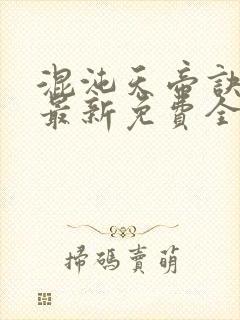 混沌天帝訣
最新免費全
掃碼賣萌